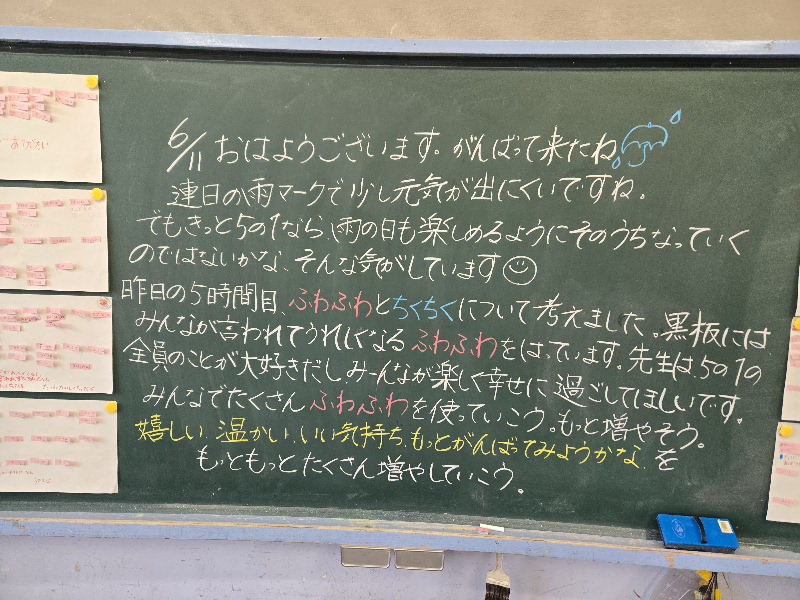 6/11 おはようございます。がんばって来たね
連日の雨マークで少し元気が出にくいですね。
でもきっと5の1なら、雨の日も楽しめるようにそのうちなっていく
のではないかな、そんな気がしています
昨日の5時間目、ふわふわとちくちくについて考えました。黒板には
みんなが言われてうれしくなる ふわふわをはっています。先生は、5の1の
全員のことが大好きだし、みーんなが楽しく幸せに過ごしてほしいです。
みんなでたくさん ふわふわを使っていこう。もっと増やそう。
嬉しい、温かい、いい気持ち、もっとがんばってみようかな、を
もっともっとたくさん増やしていこう。